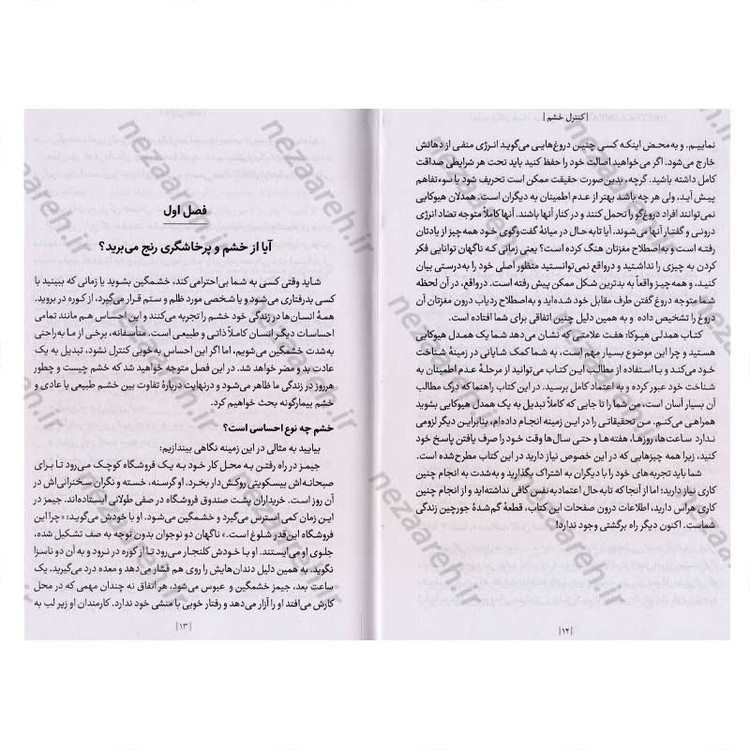 | کنترل خشم |
نماییم. و به‌محض اینکه کسی چنین دروغ‌هایی می‌گوید انرژی منفی از دهانش
خارج می‌شود. اگر می‌خواهید اصالت خود را حفظ کنید باید تحت هر شرایطی صداقت
کامل داشته باشید. گرچه، بدین‌صورت حقیقت ممکن است تحریف شود یا سوءتفاهم
پیش آید، ولی هر چه باشد بهتر از عدم اطمینان به دیگران است. همدلان هیوکایی
نمی‌توانند افراد دروغ‌گو را تحمل کنند و در کنار آنها باشند. آنها کاملاً متوجه تضاد انرژی
درونی و گفتار آنها می‌شوند. آیا تابه‌حال در میانهٔ گفت‌وگوی خود همه‌چیز از یادتان
رفته است و به‌اصطلاح مغزتان هنگ کرده است؟ یعنی زمانی که ناگهان توانایی فکر
کردن به چیزی را نداشتید و درواقع نمی‌توانستید منظور اصلی خود را به‌درستی بیان
کنید، و همه‌چیز واقعاً به بدترین شکل ممکن پیش رفته است. درواقع، در آن لحظه
شما متوجه دروغ گفتن طرف مقابل خود شده‌اید و به‌اصطلاح ردیاب درون مغزتان آن
دروغ را تشخیص داده و به همین دلیل چنین اتفاقی برای شما افتاده است.
کتاب همدلی هیوکا: هفت علامتی که نشان می‌دهد شما یک همدل هیوکایی
هستید و چرا این موضوع بسیار مهم است، به شما کمک شایانی در زمینهٔ شناخت
خود می‌کند و با استفاده از مطالب این کتاب می‌توانید از مرحلهٔ عدم اطمینان به
شناخت خود عبور کرده و به اعتماد کامل برسید. در این کتاب راهنما که درک مطالب
آن بسیار آسان است، من شما را تا جایی که کاملاً تبدیل به یک همدل هیوکایی بشوید
همراهی می‌کنم. من تحقیقاتی را در این زمینه انجام داده‌ام، بنابراین دیگر لزومی
ندارد ساعت‌ها، روزها، هفته‌ها و حتی سال‌ها وقت خود را صرف یافتن پاسخ خود
کنید، زیرا همه چیزهایی که در این خصوص نیاز دارید در این کتاب مطرح شده است.
شما باید تجربه‌های خود را با دیگران به اشتراک بگذارید و به‌شدت به انجام چنین
کاری نیاز دارید؛ اما از آنجا که تابه‌حال اعتمادبه‌نفس کافی نداشته‌اید و از انجام چنین
کاری هراس دارید، اطلاعات درون صفحات این کتاب، قطعهٔ گم‌شدهٔ جورچین زندگی
شماست. اکنون دیگر راه برگشتی وجود ندارد!
| ۱۲ |
فصل اول
آیا از خشم و پرخاشگری رنج می‌برید؟
شاید وقتی کسی به شما بی‌احترامی کند، خشمگین بشوید یا زمانی که ببینید با
کسی بدرفتاری می‌شود و یا شخصی مورد ظلم و ستم قرار می‌گیرد، از کوره در بروید.
همهٔ انسان‌ها در زندگی خود خشم را تجربه می‌کنند و این احساس هم مانند تمامی
احساسات دیگر انسان کاملاً ذاتی و طبیعی است. متأسفانه، برخی از ما به‌راحتی
به‌شدت خشمگین می‌شویم، اما اگر این احساس به‌خوبی کنترل نشود، تبدیل به یک
عادت بد و مضر خواهد شد. در این فصل متوجه خواهید شد که خشم چیست و چطور
هرروز در زندگی ما ظاهر می‌شود و درنهایت دربارهٔ تفاوت بین خشم طبیعی یا عادی و
خشم بیمارگونه بحث خواهیم کرد.
خشم چه نوع احساسی است؟
بیایید به مثالی در این زمینه نگاهی بیندازیم:
جیمز در راه رفتن به محل کار خود به یک فروشگاه کوچک می‌رود تا برای
صبحانه‌اش بیسکویتی روکش‌دار بخرد. او گرسنه، خسته و نگران سخنرانی‌اش در
آن روز است. خریداران پشت صندوق فروشگاه در صفی طولانی ایستاده‌اند. جیمز در
این زمان کمی استرس می‌گیرد و خشمگین می‌شود. او با خودش می‌گوید: «چرا این
فروشگاه این‌قدر شلوغ است.» ناگهان دو نوجوان بدون توجه به صف تشکیل شده،
جلوی او می‌ایستند. او با خودش کلنجار می‌رود تا از کوره در نرود و به آن دو ناسزا
نگوید. به همین دلیل دندان‌هایش را روی هم فشار می‌دهد و معده درد می‌گیرد. یک
ساعت بعد، جیمز خشمگین و عبوس می‌شود، هر اتفاق نه چندان مهمی که در محل
کارش می‌افتد او را آزار می‌دهد و رفتار خوبی با منشی خود ندارد. کارمندان او زیر لب به
| ۱۳ |
nezaareh.ir
nezaareh.ir
nezaareh.ir
nezaareh.ir
nezaareh.ir
nezaareh.ir